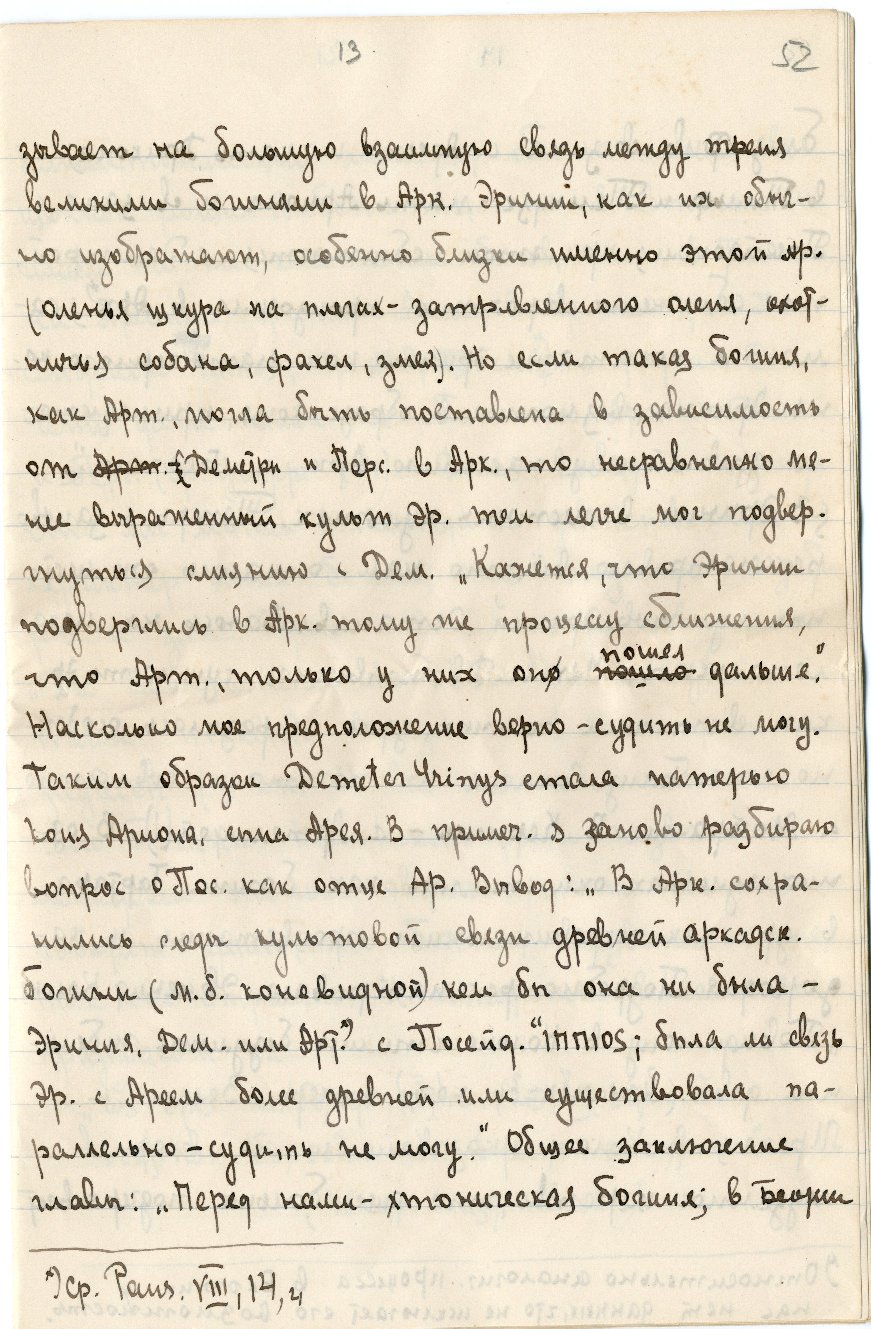 13
52
зывает на большую взаимную связь между тремя
великими богинями в Арк. Эринии, как их обыч-
но изображают, особенно близки именно этой Ар.
(оленья шкура на плечах – затравленного оленя, охот-
ничья собака, факел, змея). Но если такая богиня,
как Арт., могла быть поставлена в зависимость
от Арт. Деметры и Перс. в Арк., то несравненно ме-
нее выраженный культ Эр. тем легче мог подвер-
гнуться слиянию с Дем. „Кажется, что Эринии
подверглись в Арк. тому же процессу сближения,
пошел
что Арт., только у них оно пошло дальше".
Насколько мое предположение верно – судить не могу.
Таким образом Demeter Erinys стала матерью
коня Ариона, сына Арея. В примеч. я заново разбираю
вопрос о Пос. как отце Ар. Вывод: „В Арк. сохра-
нились следы культовой связи древней аркадск.
богини (м.б. коневидной) кем бы она ни была –
Эриния, Дем. или Арт.*) с Посейд. ῞ΙΠΠΙΟS; была ли связь
Эр. с Ареем более древней или существовала па-
раллельно – судить не могу." Общее заключение
главы: „Перед нами – хтоническая богиня; в Беотии
*) ср. Paus. VIII, 14, 4